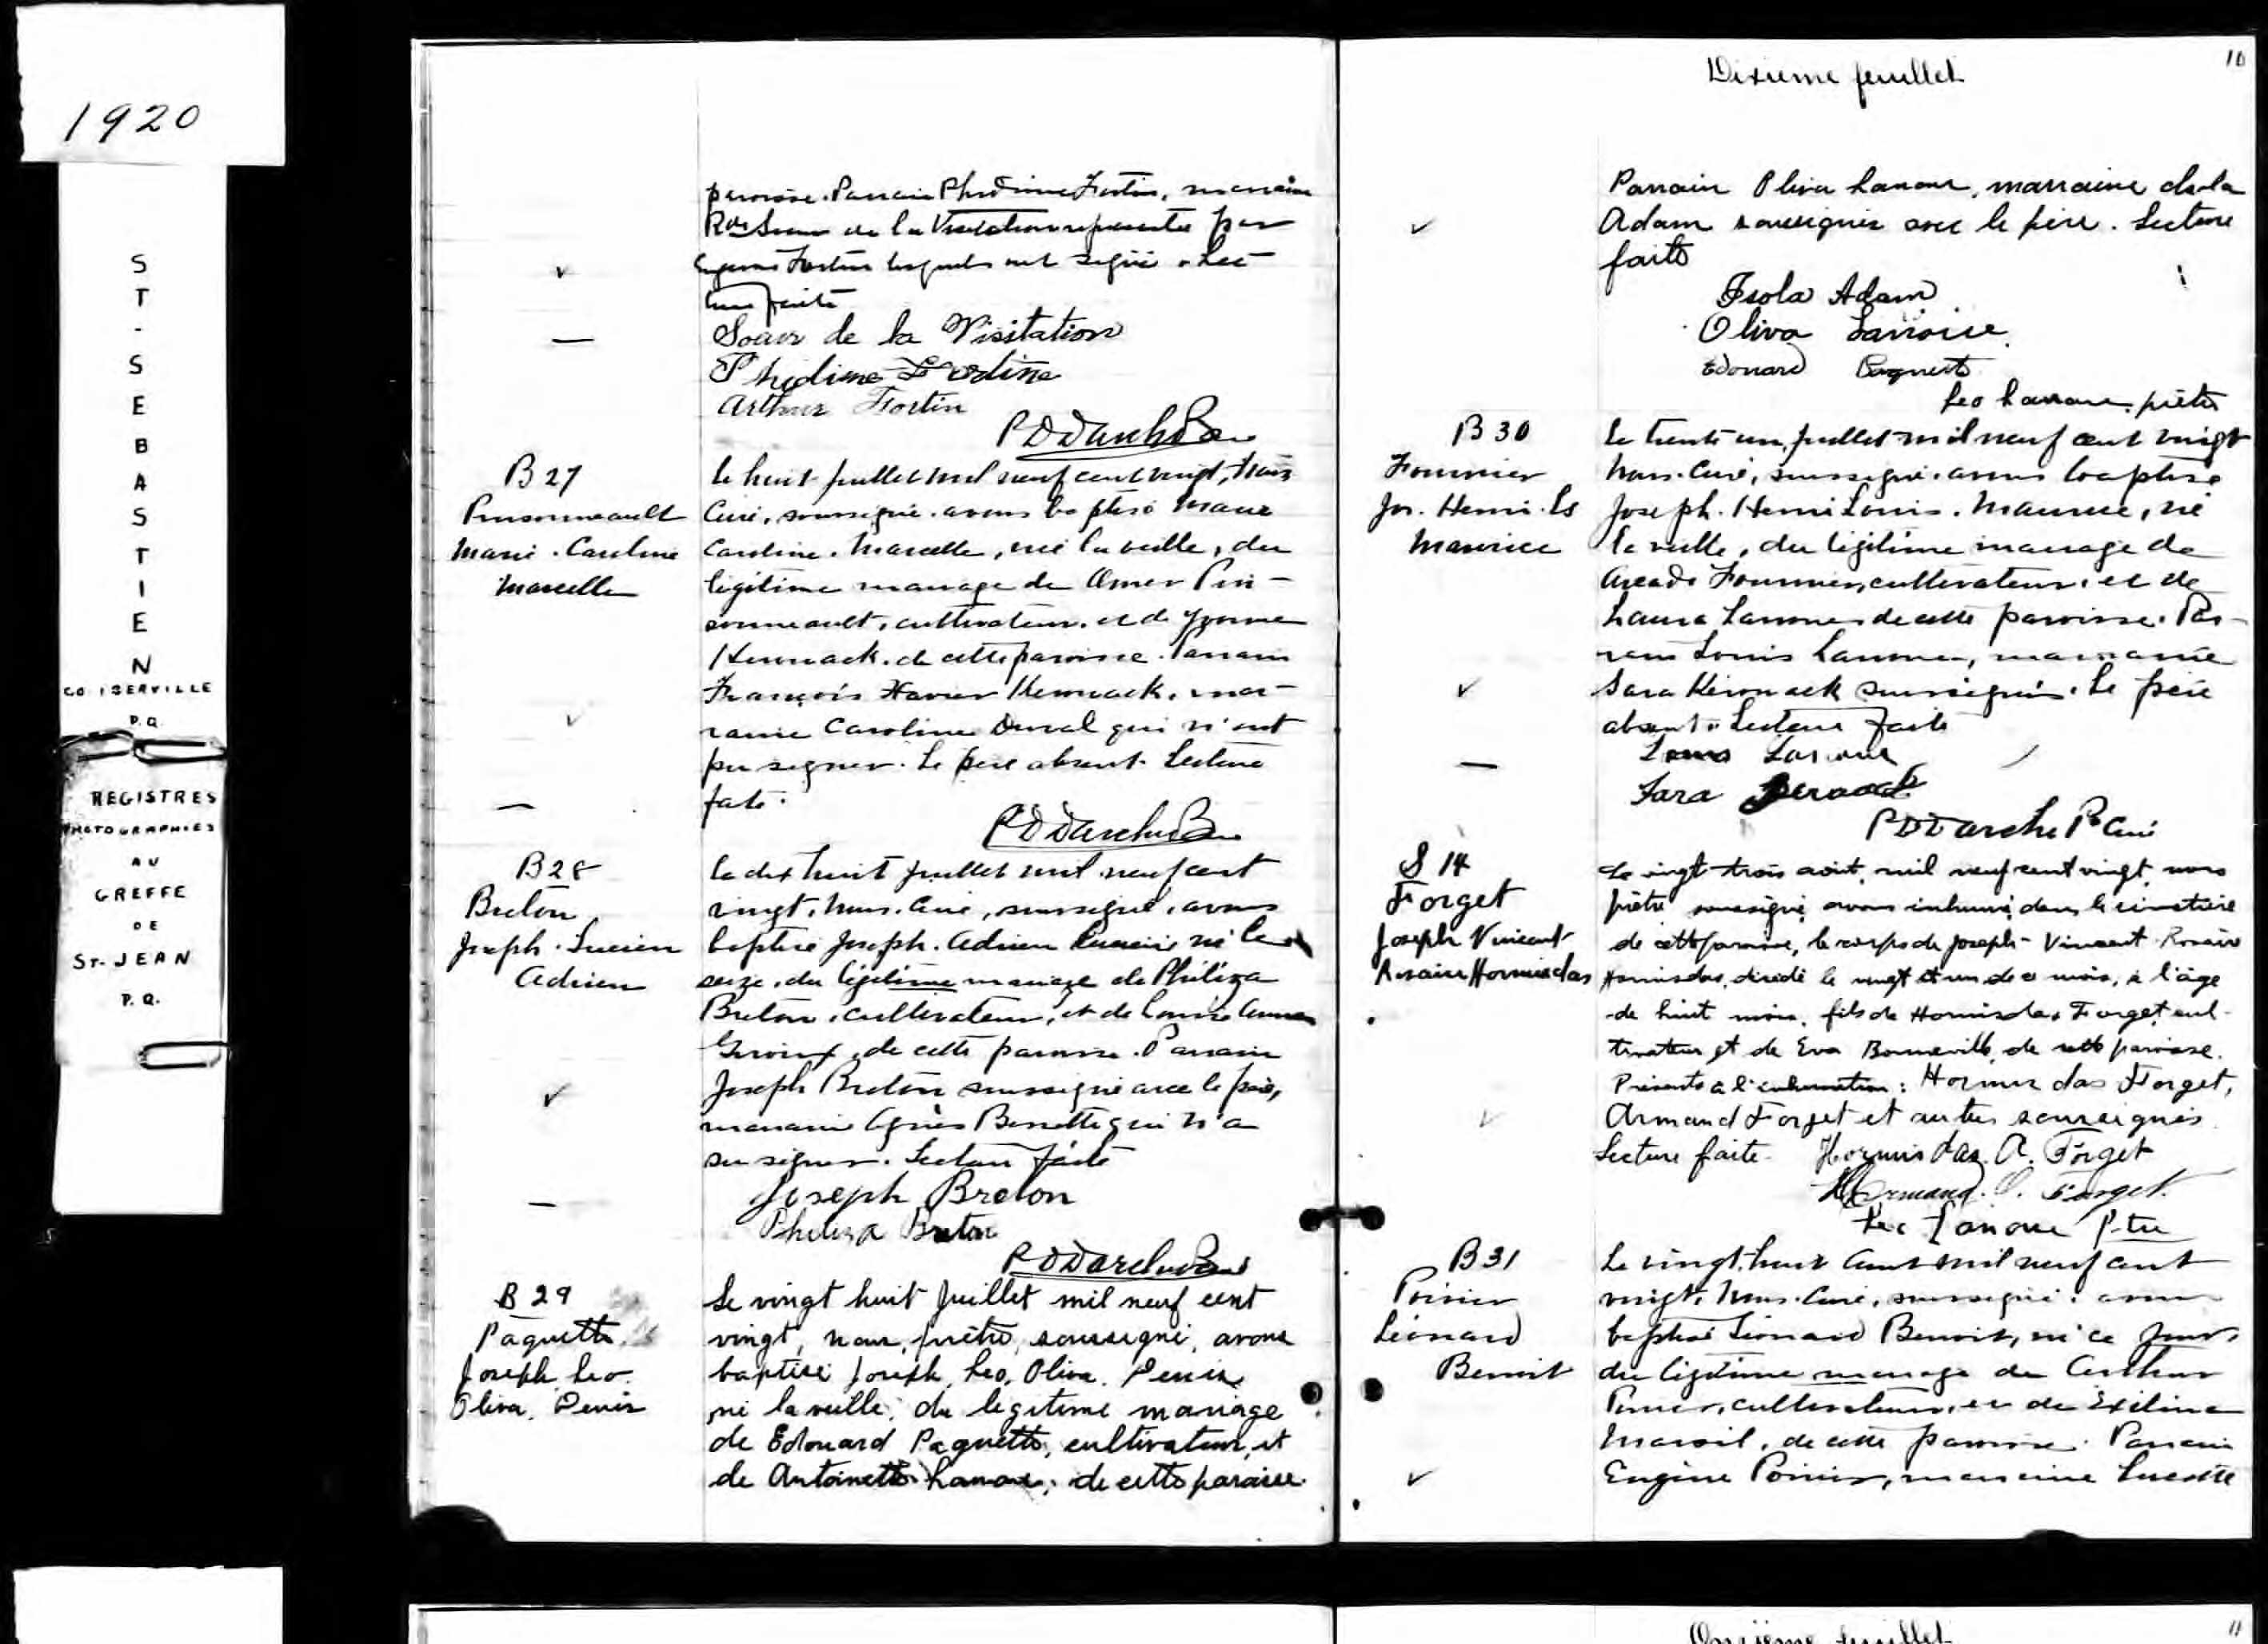 1920
ST-SEBASTIEN
CO. IBERVILLE
P.Q.
REGISTRES
PHOTOGRAPHIES
AU
GREFFE
DE
ST. JEAN
P.Q.
paroisse. Parrain Phidime Fortin, marraine
Rde Soeur de la Visitation représentée par
Fortin lesquels ont signé. Lec-
ture faite
Soeur de la Visitation
Phidime Fortin
Arthur Fortin
B 27
Pinsonneault
Marie. Caroline
Marcelle
Le huit juillet mil neuf cent vingt, nous
Curé, soussigné. avons baptisé Marie
Caroline. Marcelle, née la veille, du
légitime mariage de Omer Pin-
sonneault, cultivateur, et de Yvonne
de cette paroisse. Parrain
François Xavier mar-
raine Caroline Duval qui n'ont
pu signer. Le père absent. Lecture
faite.
B 28
Breton
Joseph. Lucien
Adrien
Le dix huit juillet mil neuf cent
vingt, nous. Curé, soussigné, avons
baptisé Joseph. Adrien Lucien né le
seize, du légitime mariage de Philiza
Breton, cultivateur, et de Louise Anna
de cette paroisse. Parrain
Joseph Breton soussigné avec le père,
marraine Agnès qui n'a
su signer. Lecture faite
Joseph Breton
Philiza Breton
B 29
Paquette
Joseph Leo.
Oliva. Denis
Le vingt huit Juillet mil neuf cent
vingt, nous, prêtre, soussigné, avons
baptisé Joseph, Leo, Oliva. Denis
né la veille, du legitime mariage
de Edouard Paquette, cultivateur, et
de Antoinette Lanoue, de cette paroisse.
Dixieme feuillet
10
Parrain Oliva Lanoue, marraine
Adam soussignés avec le père. Lecture
faite
Isola Adam
Oliva
Edouard Paquette
Leo Lanoue, prêtre
B 30
Fournier
Jos. Henri. Ls
Maurice
Le trente un juillet mil neuf cent vingt
nous. Curé, soussigné. avons baptisé
Joseph. Henri Louis. Maurice, né
la veille, du légitime mariage de
Arcade Fournier, cultivateur, et de
Laura Lanoue de cette paroisse. Par-
rain Louis Lanoue, marraine
Sara soussignés. Le père
absent. Lecture faite
Louis Lanoue
Sara
P D Darche Ptre Curé
S 14
Forget
Joseph Vincent
Rosaire Hormisdas
Le vingt-trois août, mil neuf cent vingt, nous
prêtre soussigné, avons inhumé, dans le cimetière
de cette paroisse, le corps de Joseph-Vincent Rosaire
Hormisdas, décédé le vingt et un de ce mois, à l'âge
de huit mois, fils de Hormisdas Forget, cul-
tivateur, et de Eva Bonneville, de cette paroisse.
Présents à l'inhumation: Hormisdas Forget,
Armand Forget et autres soussignés.
Lecture faite. Hormisdas. A. Forget
Armand. O. Forget.
Leo Lanoue Ptre
B 31
Poirier
Léonard
Benoit
Le vingt. huit Aout mil neuf cent
vingt, nous. Curé, soussigné. avons
baptisé Léonard Benoit, né ce jour,
du légitime mariage de Arthur
Poirier, cultivateur, et de Exilina
de cette paroisse. Parrain
Eugène Poirier, marraine
Onzième feuillet
11